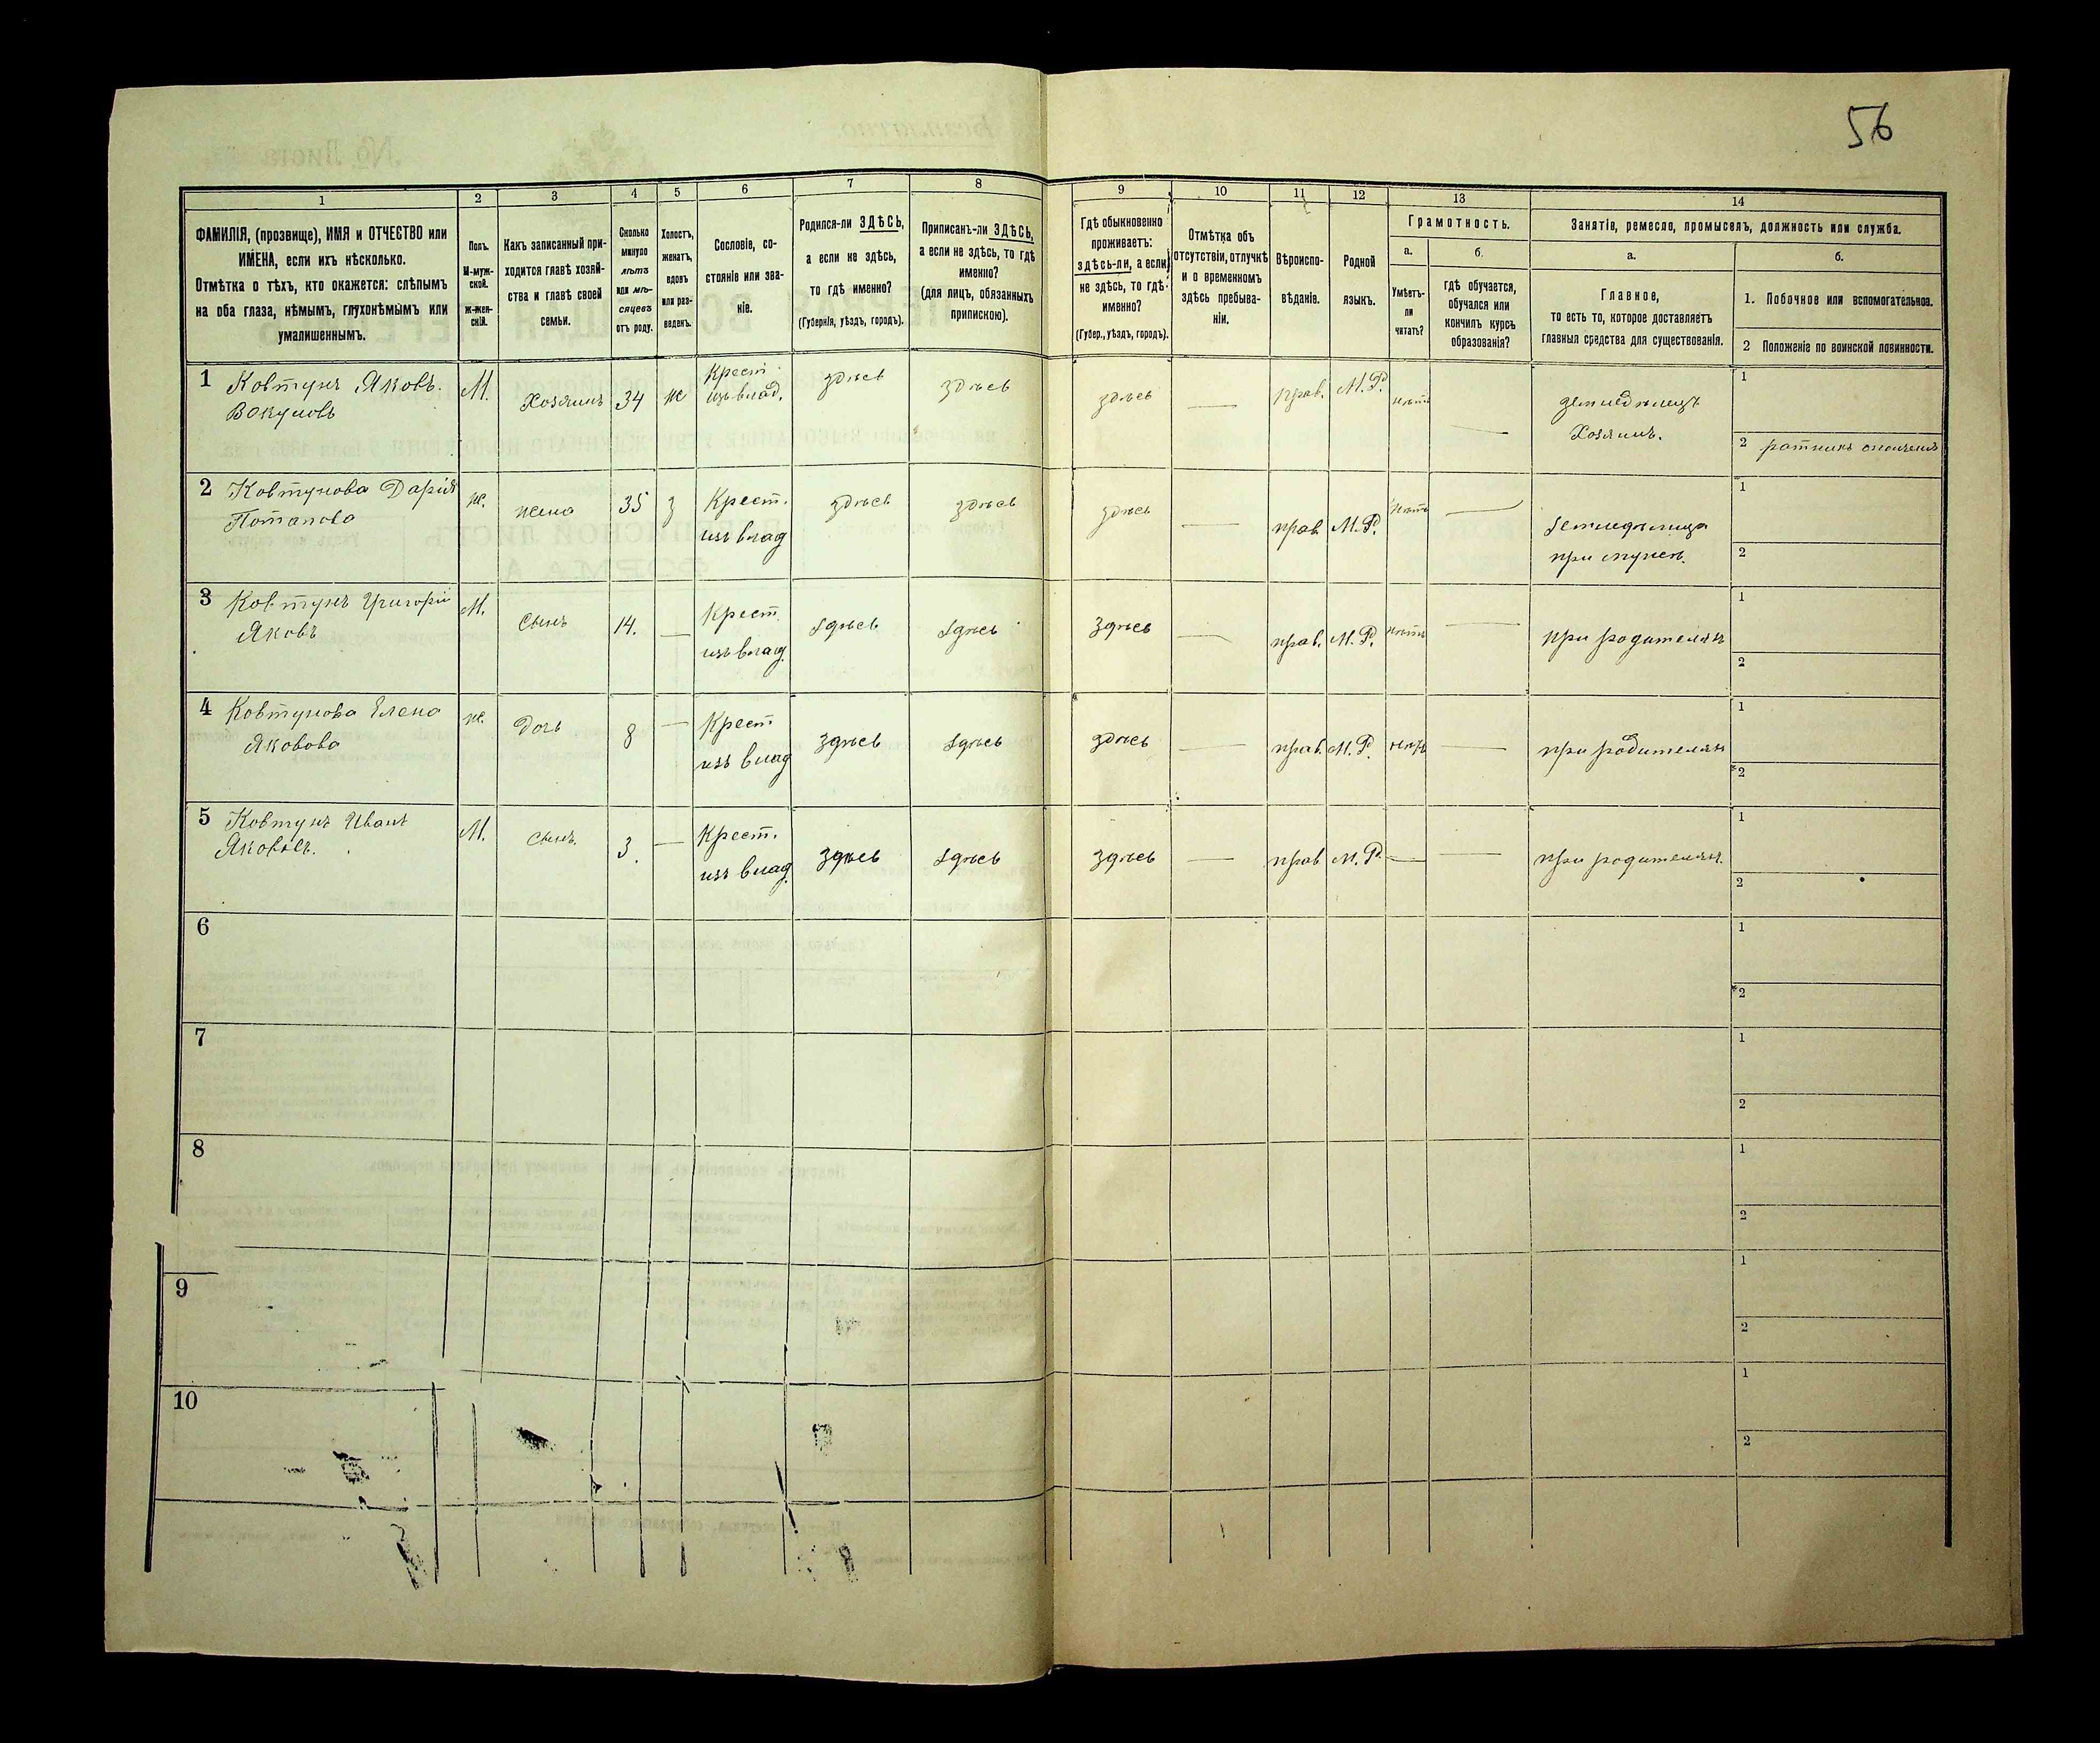 56
1 2 3 4 5 6 7 8 9 10 11 12 13 14
ФАМИЛІЯ, (прозвище), ИМЯ и ОТЧЕСТВО или
ИМЕНА, если ихъ нѣсколько.
Отмѣтка о тѣхъ, кто окажется: слѣпымъ
на оба глаза, нѣмымъ, глухонѣмымъ или
умалишеннымъ.
Полъ.
М-муж-
ской.
ж-жен-
скій.
Какъ записанный при-
ходится главѣ хозяй-
ства и главѣ своей
семьи.
Сколько
минуло
лѣтъ
или мѣ-
сяцевъ
отъ роду.
Холостъ,
женатъ,
вдовъ
или раз-
веденъ.
Сословіе, со-
стояніе или зва-
ніе.
Родился-ли ЗДѢСЬ,
а если не здѣсь,
то гдѣ именно?
(Губернія, уѣздъ, городъ).
Приписанъ-ли ЗДѢСЬ,
а если не здѣсь, то гдѣ
именно?
(для лицъ, обязанныхъ
припискою).
Гдѣ обыкновенно
проживаетъ:
здѣсь-ли, а если
не здѣсь, то гдѣ
именно?
(Губер., уѣздъ, городъ).
Отмѣтка объ
отсутствіи, отлучкѣ
и о временномъ
здѣсь пребыва-
ніи.
Вѣроиспо-
вѣданіе.
Родной
языкъ.
Грамотность.
а.
Умѣетъ-
ли
читать?
б.
гдѣ обучается,
обучался или
кончилъ курсъ
образованія?
Занятіе, ремесло, промыселъ, должность или служба.
а.
Главное,
то есть то, которое доставляетъ
главныя средства для существованія.
б.
1. Побочное или вспомогательное.
2 Положеніе по воинской повинности.
1 Ковтунъ Яковъ. М. Хозяинъ 34 ж Крест. изъ влад. здѣсь здѣсь здѣсь — Прав. М.Р. нѣтъ — земледѣлецъ 1
Хозяинъ. 2 ратникъ ополченія
2 Ковтунова Дарія ж. жена 35 з Крест. изъ влад здѣсь здѣсь здѣсь — прав. М.Р. нѣтъ — земледѣлица 1
Потапова при мужѣ. 2
3 Ковтунъ Григорій М. Сынъ 14. — Крест. изъ влад. здѣсь здѣсь здѣсь — прав. М.Р. нѣтъ — при родителяхъ 1
Яковъ 2
4 Ковтунова Елена ж. Дочь 8 — Крест изъ влад здѣсь здѣсь здѣсь — прав. М.Р. нѣтъ — при родителяхъ 1
Яковова 2
5 Ковтунъ Иванъ М. Сынъ. 3. — Крест. изъ влад. здѣсь здѣсь здѣсь — прав М.Р. — — при родителяхъ. 1
Яковлъ. 2
6 1
2
7 1
2
8 1
2
9 1
2
10 1
2